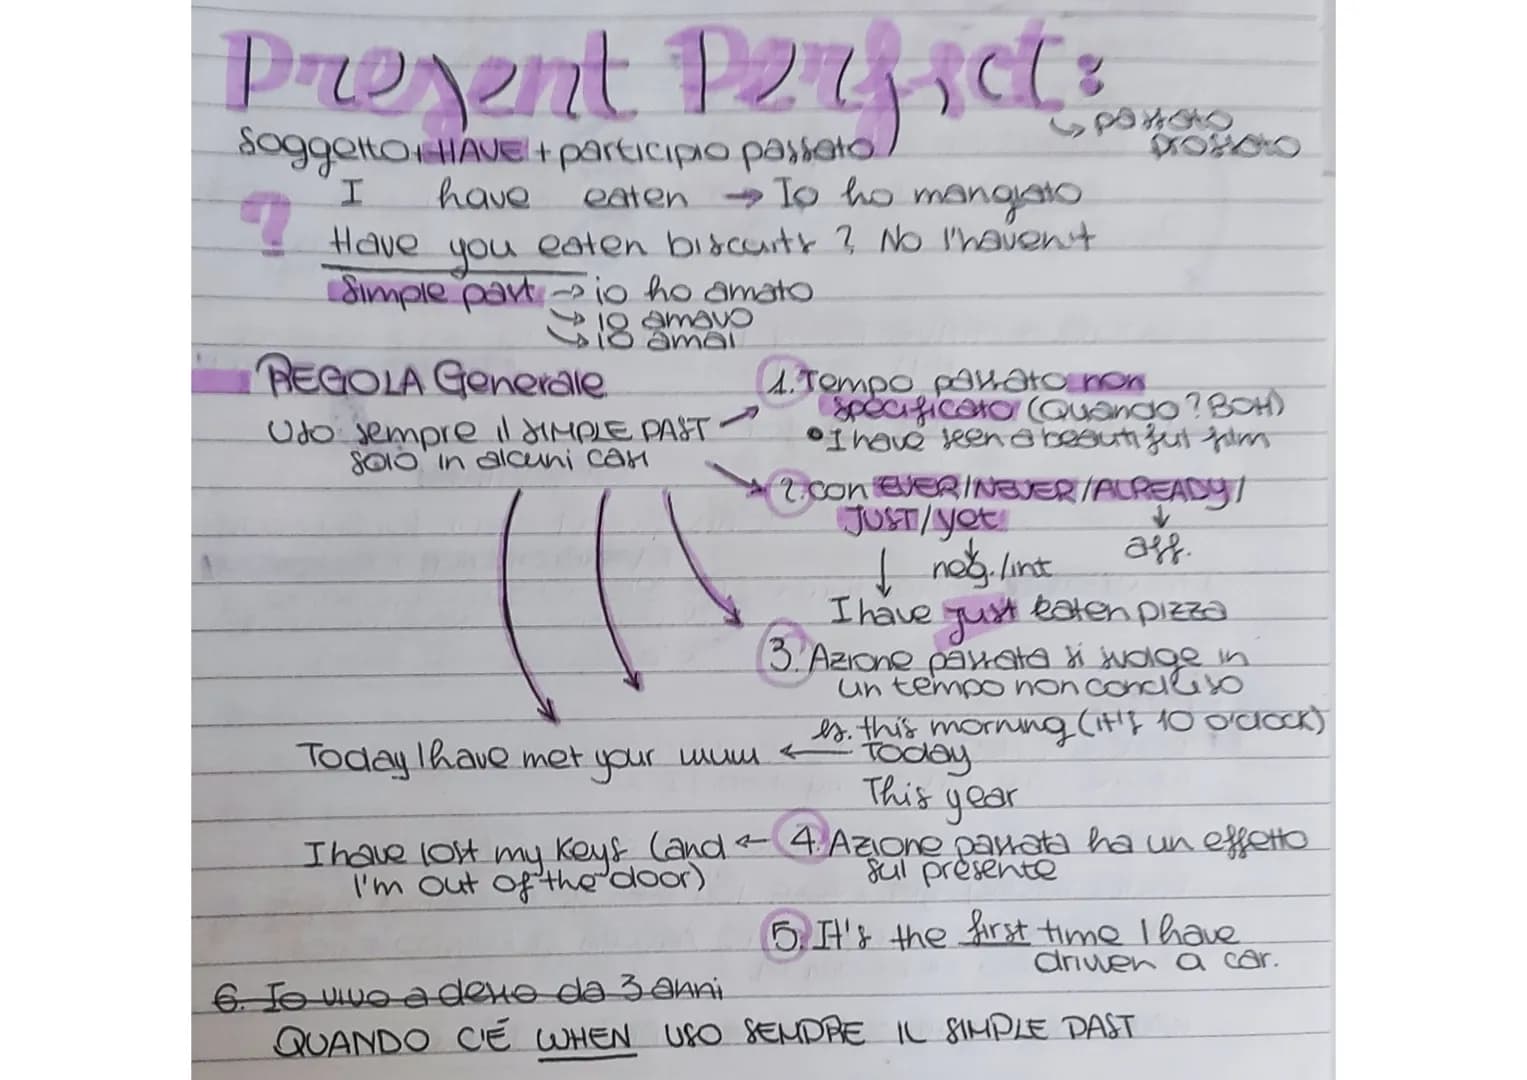 Present Perfect:
↳ passato
prossimo
Soggetto + HAVE + participio passato
I have eaten → Io ho mangiato
?
Have you eaten biscuits? No I haven't
Simple past → io ho amato
→ io amavo
↳ io amai
REGOLA Generale
Uso sempre il SIMPLE PAST
solo in alcuni casi
1. Tempo passato non
specificato (Quando? BOH)
• I have seen a beautiful film
2. con EVER/NEVER/ALREADY/
JUST/yet
↓ neg./int
↓ aff.
I have just eaten pizza
3. Azione passata si svolge in
un tempo non concluso
es. this morning (it's 10 o'clock)
Today I have met your mum ← Today
This year
I have lost my keys (and ← 4. Azione passata ha un effetto
I'm out of the door) sul presente
5. It's the first time I have
driven a car.
6. Io vivo adesso da 3 anni
QUANDO C'É WHEN USO SEMPRE IL SIMPLE PAST